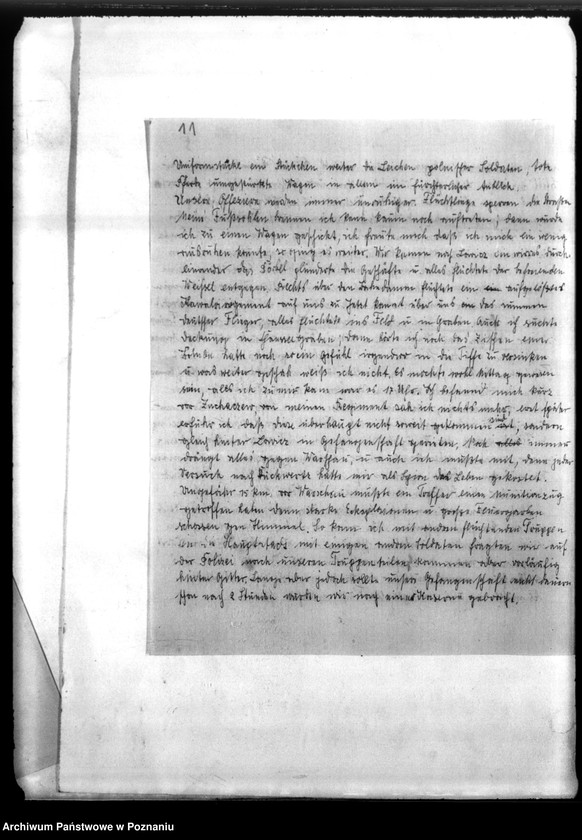 11
Uniformstücke ein Stückchen weiter die Leichen polnischer Soldaten, tote
Pferde umgestürzte Wagen in allem ein fürchterlicher Anblick.
Unsere Offeziere werden immer unruhiger. Flüchtlinge sperren die Straßen
Meine Fußsohlen brennen ich kann kaum noch auftreten, dann wurde
ich zu einen Wagen geschickt, ich freute mich daß ich mich ein wenig
ausruhen konnte, so ging es weiter. Wir kamen nach Lowicz ein wirres Durch-
einander das plünderte die Geschäfte u alles flüchtete der
Weichsel entgegen. Rechts über den flüchtete ein aufgelöstes
regiment auf uns zu Jetzt kommt über uns das summen
deutscher Flieger, alles flüchtete ins Feld u in Graben Auch ich suchte
Deckung in Graben, dann hörte ich noch das Zischen einer
Bombe hatte noch Gefühl irgendwo in die Tiefe zu versinken
u was weiter geschah weiß ich nicht. Es mochte wohl Mittag gewesen
sein, als ich zu mir kam war es 17 Uhr. Ich befand mich kurz
vor von meinen Regiment sah ich nichts mehr, erst später
erfuhr ich daß diese überhaupt nicht soweit gekommen sind, sondern
gleich hinter Lowicz in Gefangenschaft gerieten. Noch immer
drängt alles gegen Warschau, u auch ich mußte mit, denn jeder
Versuch nach Rückwerts hätte mir als Spion das Leben gekostet.
Ungefähr 15 km. vor Warschau mußte ein Treffer einen Munitionszug
getroffen haben denn starke Explosionen u große Feuergarben
schossen gen Himmel. So kam ich mit andern flüchtenden Truppen
in die Hauptstadt mit einigen andern Soldaten fragten wir auf
der Polizei nach unseren Truppenteilen, kammen aber vorläufig
hinter Gitter. Lange aber jedoch sollte unsere Gefangenschaft nicht dauern
schon nach 2 Stunden wurden wir nach einer Kaserne gebracht.
Archiwum Państwowe w Poznaniu